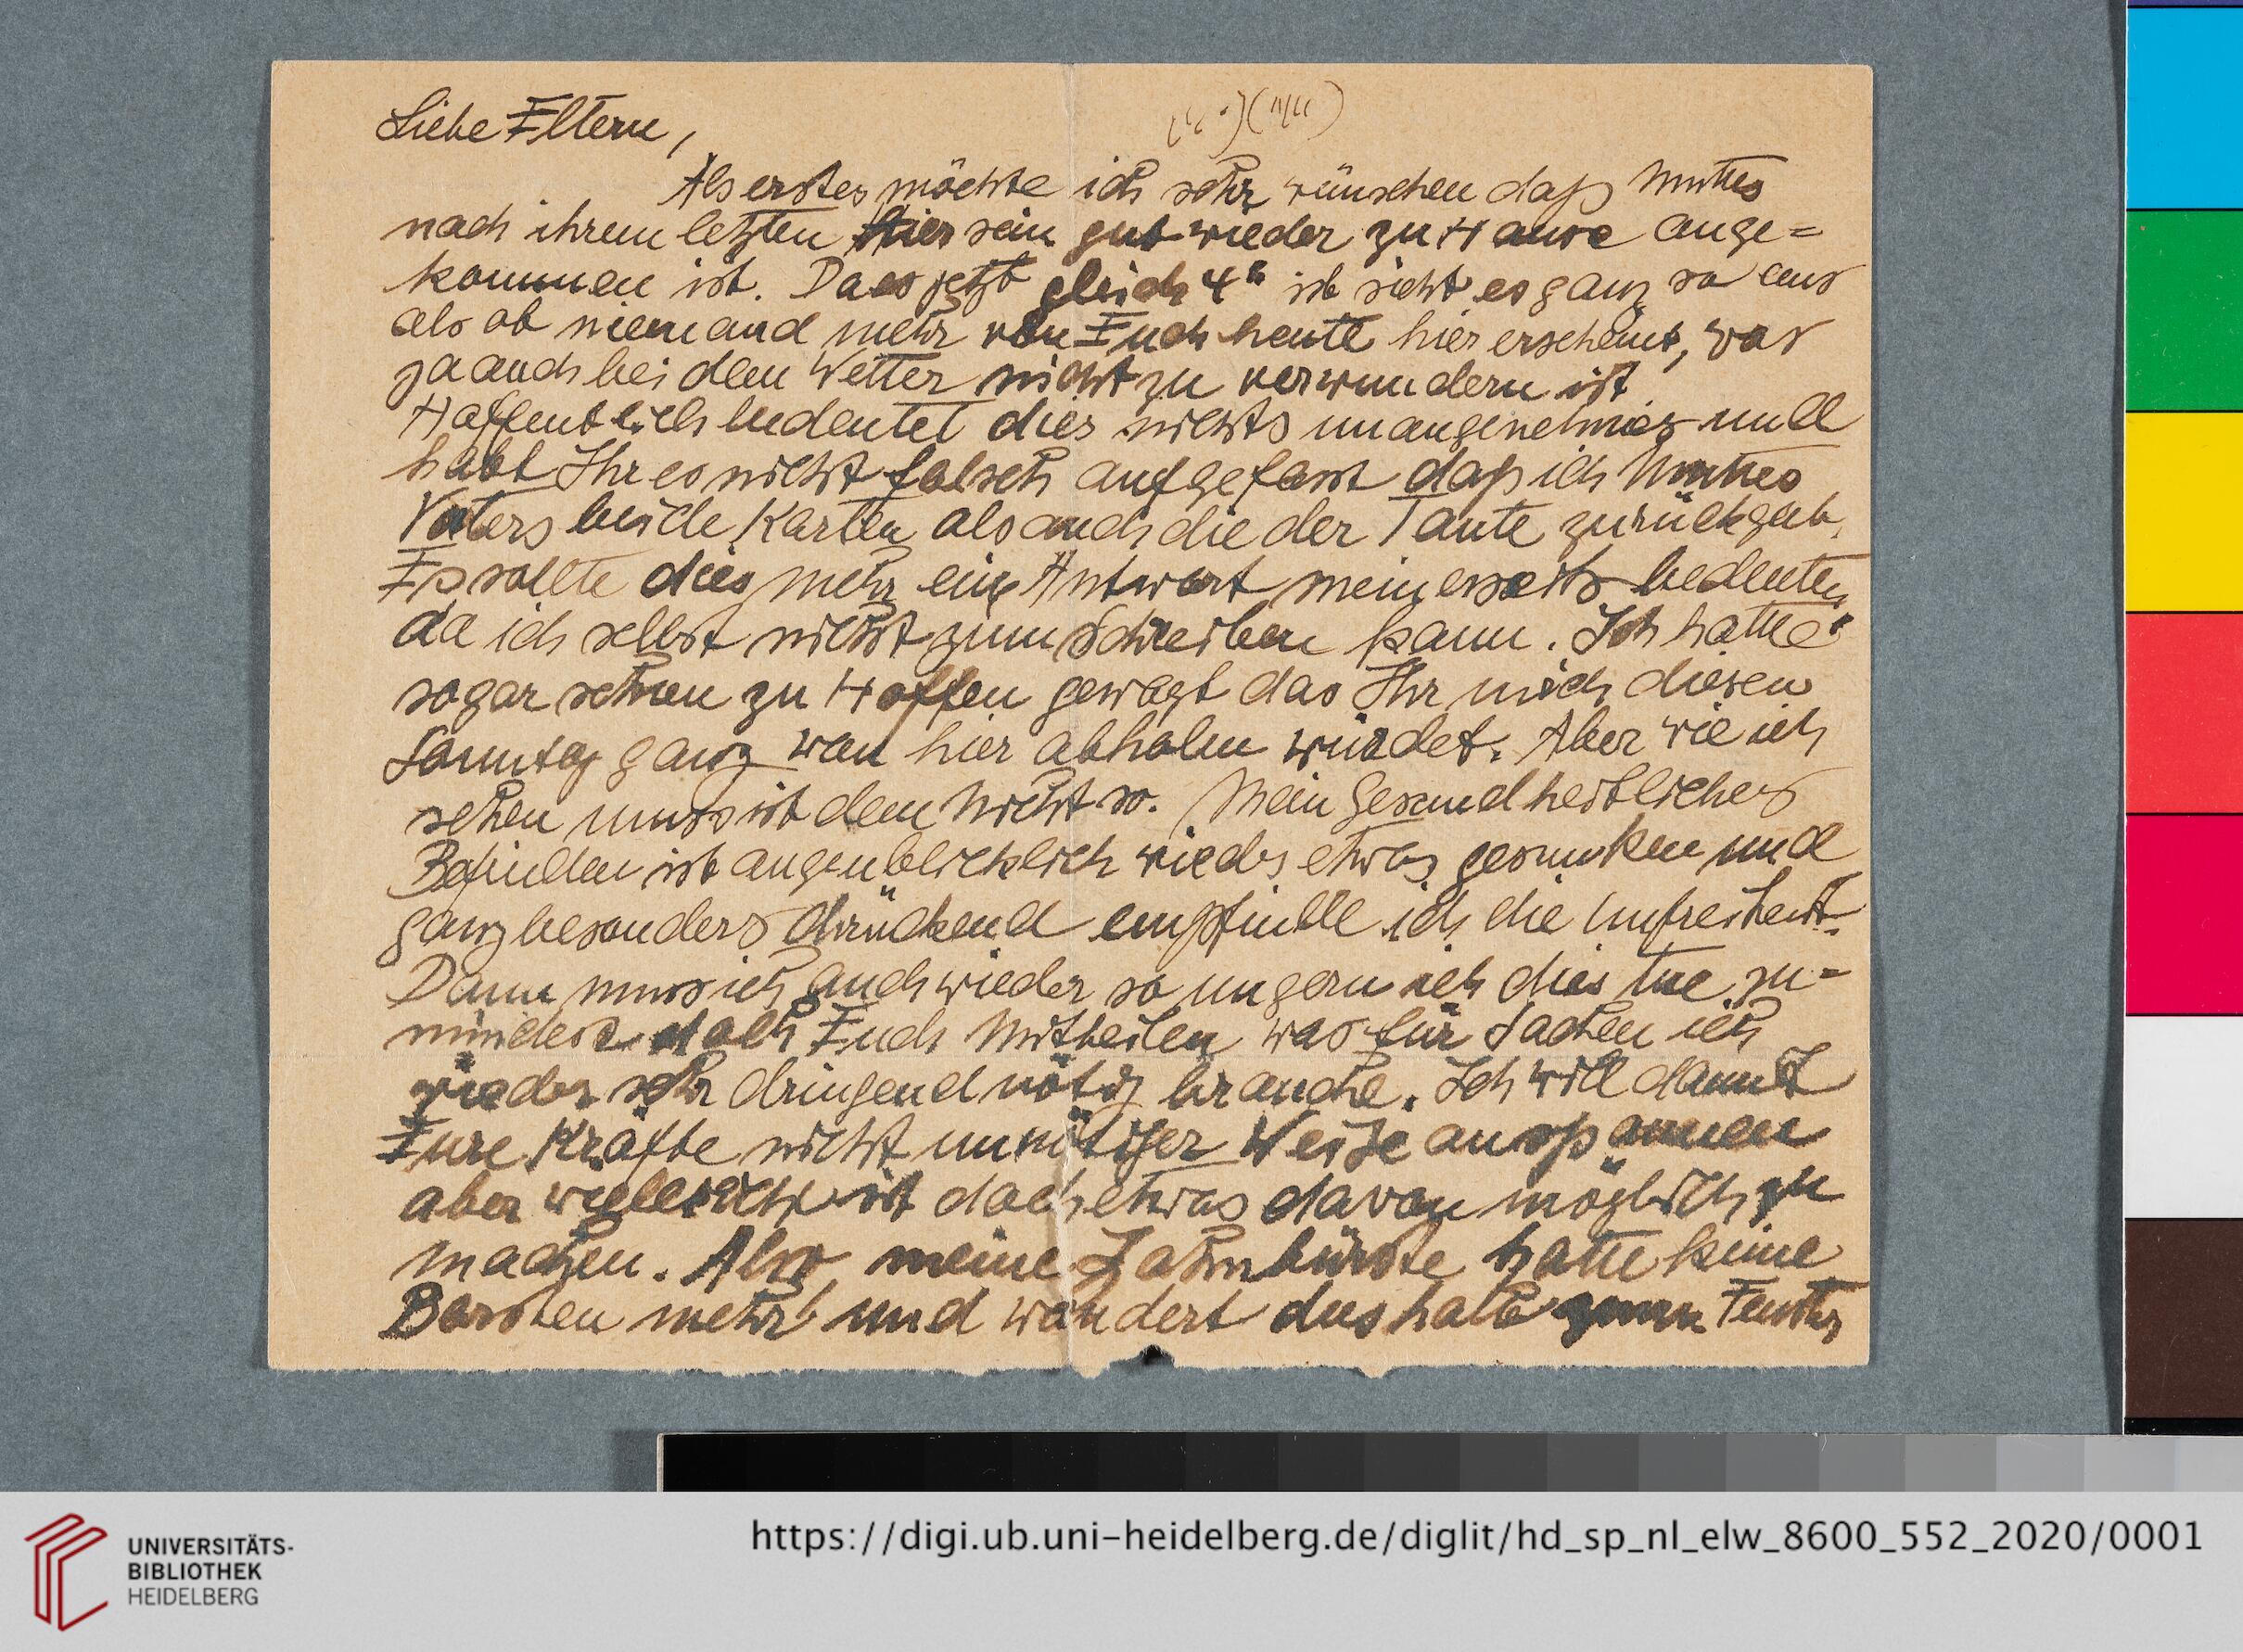 Liebe Eltern,
Als erstes möchte ich sehr wünschen daß Mutter
nach ihrem letzten Hier sein gut wieder zu Hause ange=
kommen ist. Da es jetzt gleich 4 ist sieht es ganz so aus
als ob niemand mehr von Euch heute hier erscheint, was
ja auch bei dem Wetter nicht zu verwundern ist
Hoffentlich bedeutet dies nichts unangenehmes und
habt Ihr es nicht falsch aufgefasst daß ich Mutters
Vaters beide Karten als auch die der Tante zurückgab,
Es sollte dies mehr eine Antwort meinerseits bedeuten
da ich selbst nicht zum Schreiben kann. Ich hatte
sogar schon zu Hoffen gewagt das Ihr mich diesen
Sonntag ganz von hier abholen würdet. Aber wie ich
sehen muss ist dem Nicht so. Mein Gesundheitliches
Befinden ist augenblicklich wieder etwas gesunken und
ganz besonders drückend empfinde ich die Unfreiheit.
Dann muss ich auch wieder so ungern ich dies tue zu=
mindest doch Euch Mitteilen was für Sachen ich
wieder sehr dringend nötig brauche. Ich will damit
Eure Kräfte nicht unnötiger Weise anspannen
aber vielleicht ist doch etwas davon möglich zu
machen. Also, meine Zahnbürste hatte keine
Borsten mehr und wandert deshalb zum Fenster
UNIVERSITÄTS-
BIBLIOTHEK
HEIDELBERG
https://digi.ub.uni-heidelberg.de/diglit/hd_sp_nl_elw_8600_552_2020/0001